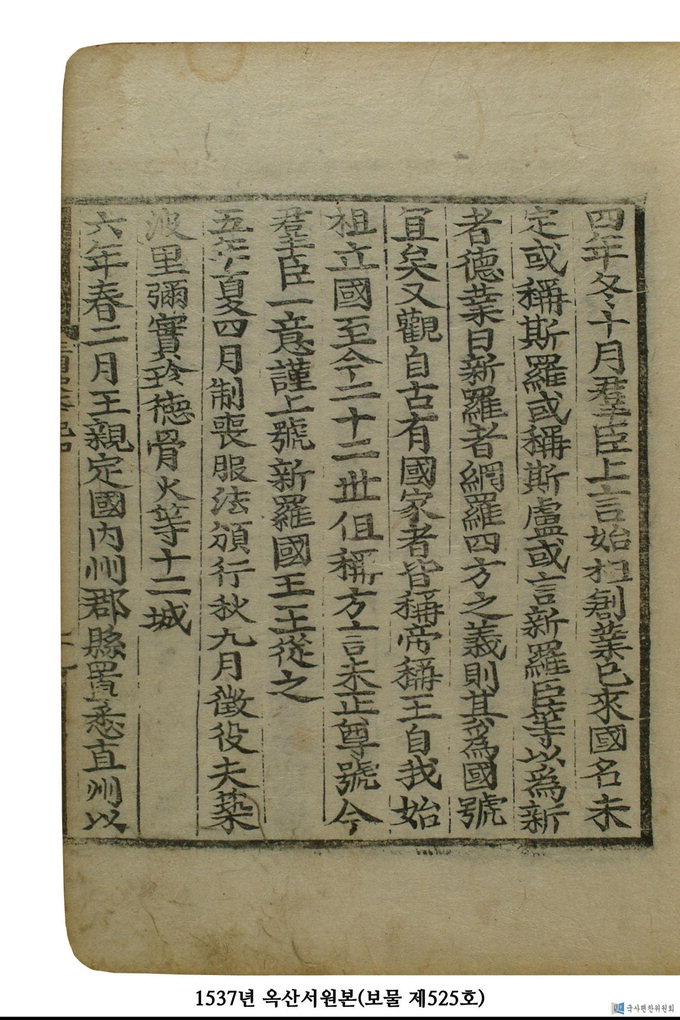 四年冬十月羣臣上言始祖創業已來國名未
定或稱斯羅或稱斯盧或言新羅臣等以爲新
者德業日新羅者網羅四方之義則其爲國號
冝矣又觀自古有國家者皆稱帝稱王自我始
祖立國至今二十二世但稱方言未正尊號今
羣臣一意謹上號新羅國王王從之
五年夏四月制喪服法頒行秋九月徵役夫築
波里彌實珍德骨火等十二城
六年春二月王親定國內州郡縣置悉直州以
1537년 옥산서원본(보물 제525호)
국사편찬위원회